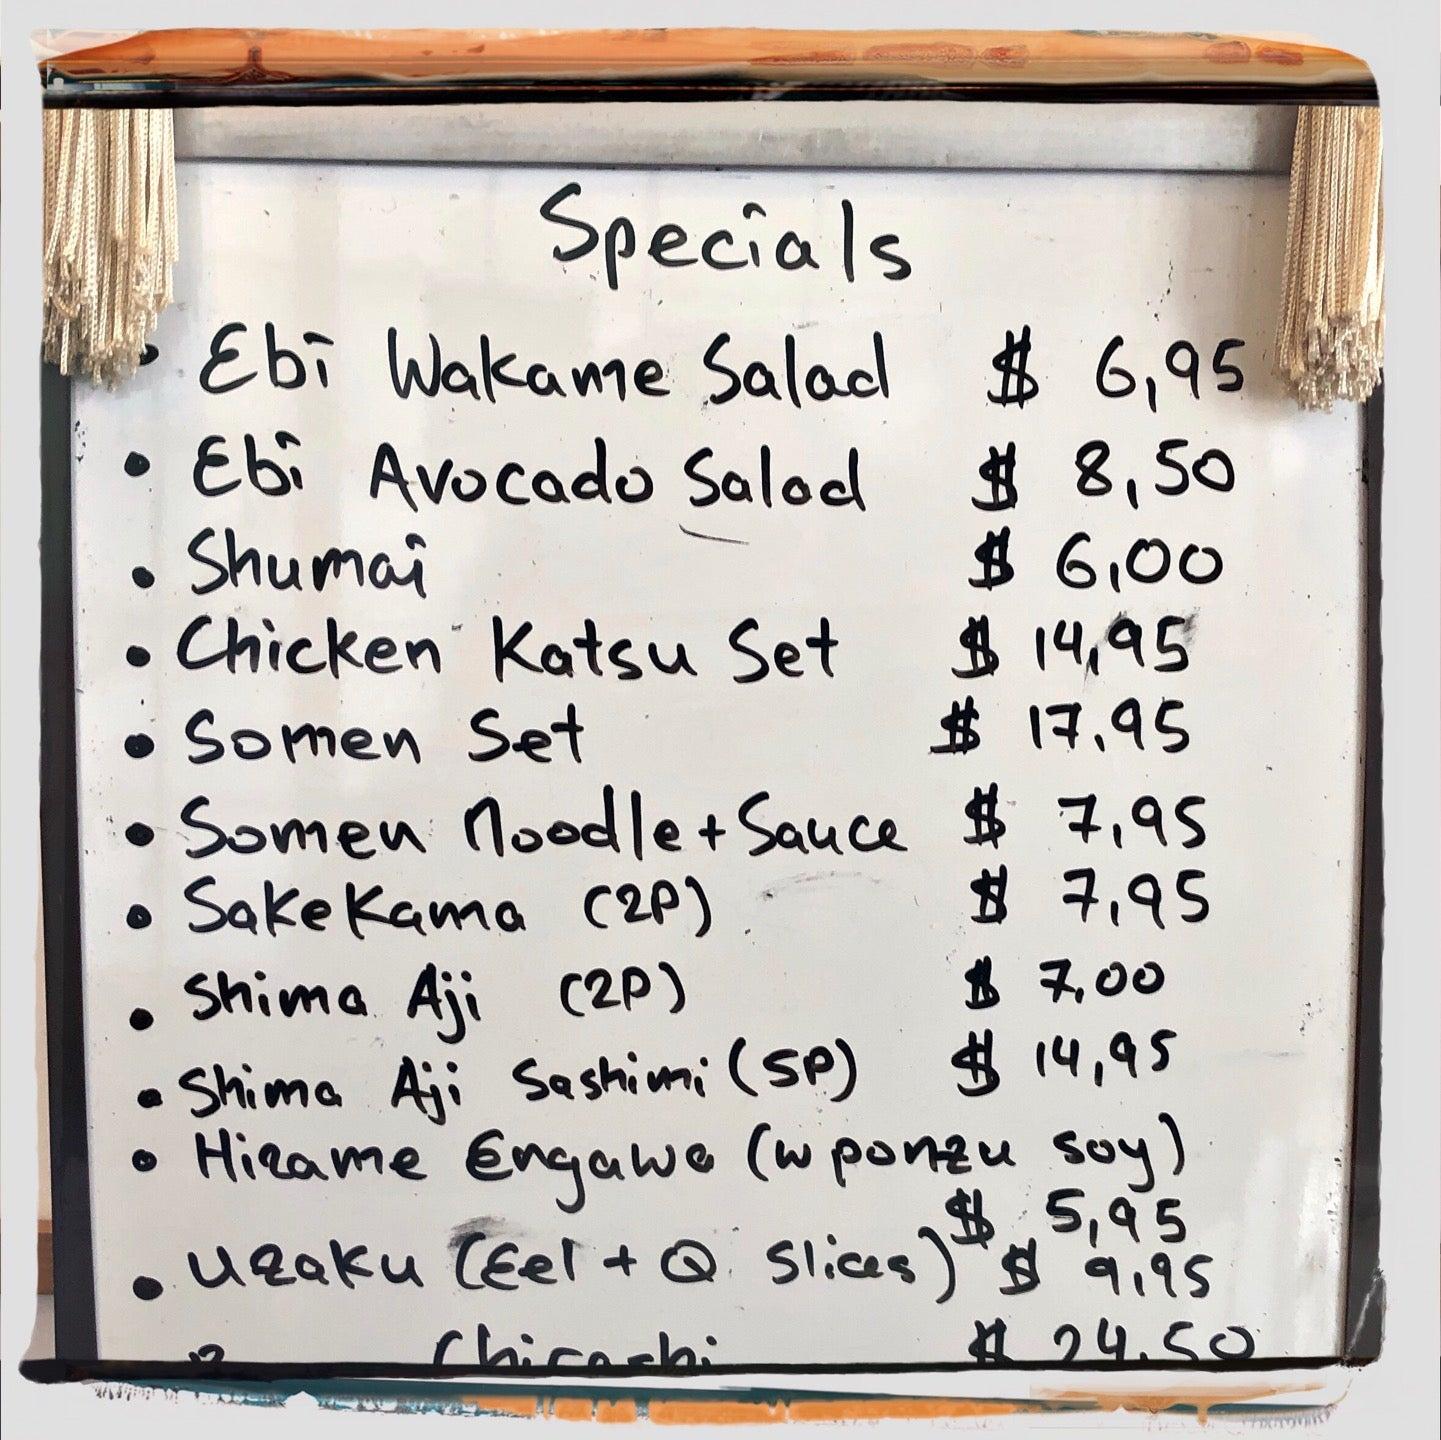 Specials
• Ebi Wakame Salad $ 6,95
• Ebi Avocado Salad $ 8,50
• Shumai $ 6,00
• Chicken Katsu Set $ 14,95
• Somen Set $ 17,95
• Somen Noodle + Sauce $ 7,95
• Sake Kama (2P) $ 7,95
• Shima Aji (2P) $ 7,00
• Shima Aji Sashimi (5P) $ 14,95
• Hirame Engawa (w ponzu soy)
$ 5,95
• Uzaku (Eel + Q slices) $ 9,95
Chirashi $ 24.50